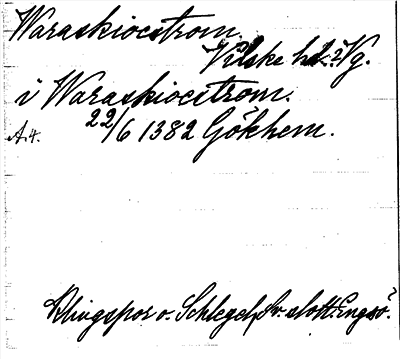 Waraskiocstrom.
Vilske hd. Vg.
i Waraskiocstrom.
A.4. 22/6 1382 Gökhem.
Klingspor o. Schlegel, Sv. slott: Engsö.